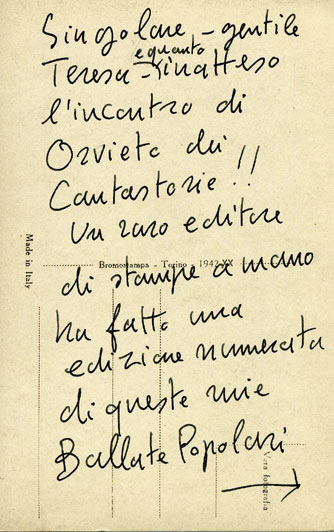 Singolare - gentile
e quanto
Teresa - inatteso
l'incontro di
Orvieto dei
Cantastorie!!
Un raro editore
Made in Italy
Bromostampa - Torino - 1942-XX
di stampe a mano
ha fatto una
edizione numerata
di queste mie
Ballate Popolari
Vera fotografia